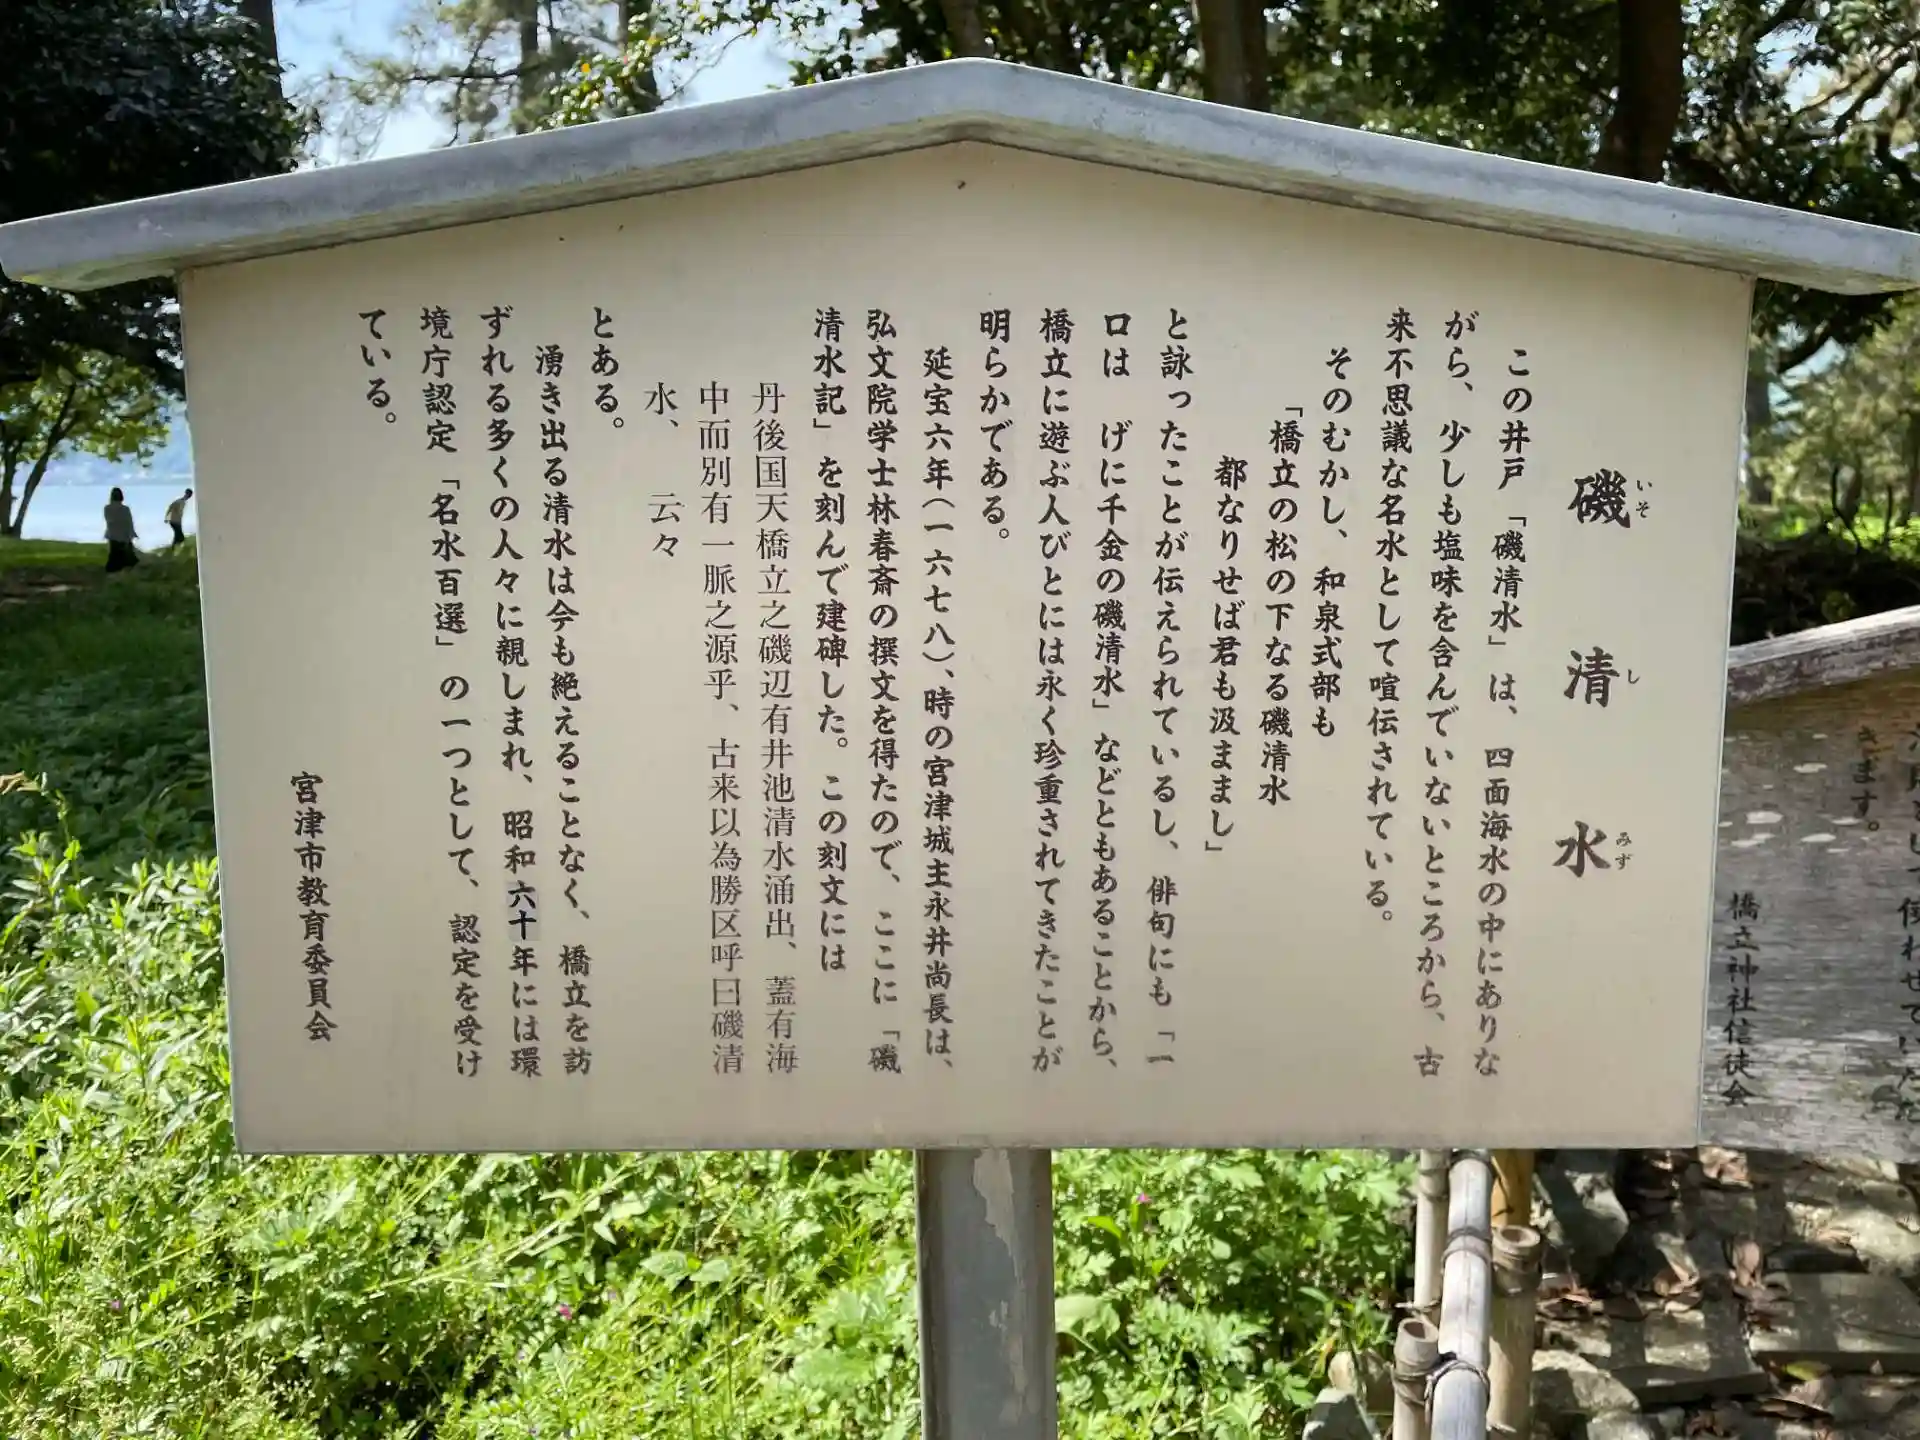 磯清水
いそしみず
この井戸「磯清水」は、四面海水の中にありな
がら、少しも塩味を含んでいないところから、古
来不思議な名水として喧伝されている。
そのむかし、和泉式部も
「橋立の松の下なる磯清水
都なりせば君も汲ままし」
と詠ったことが伝えられているし、俳句にも「一
口は げに千金の磯清水」などともあることから、
橋立に遊ぶ人びとには永く珍重されてきたことが
明らかである。
延宝六年(一六七八)、時の宮津城主永井尚長は、
弘文院学士林春斎の撰文を得たので、ここに「磯
清水記」を刻んで建碑した。この刻文には
丹後国天橋立之磯辺有井池清水涌出、蓋有海
中而別有一脈之源乎、古来以為勝区呼曰磯清
水、 云々
とある。
湧き出る清水は今も絶えることなく、橋立を訪
ずれる多くの人々に親しまれ、昭和六十年には環
境庁認定「名水百選」の一つとして、認定を受け
ている。
宮津市教育委員会
使わせていただ
きます。
橋立神社信徒会